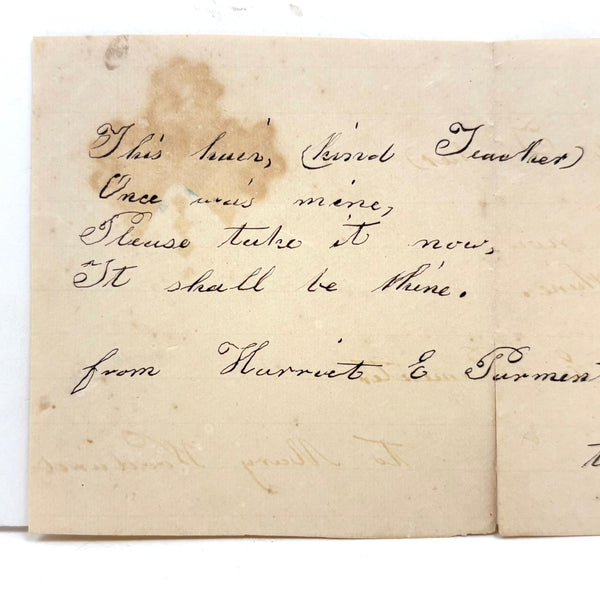 This hair, (kind Teacher)
Once was mine,
Please take it now,
It shall be thine.
from Harriet E Parment
to Mary